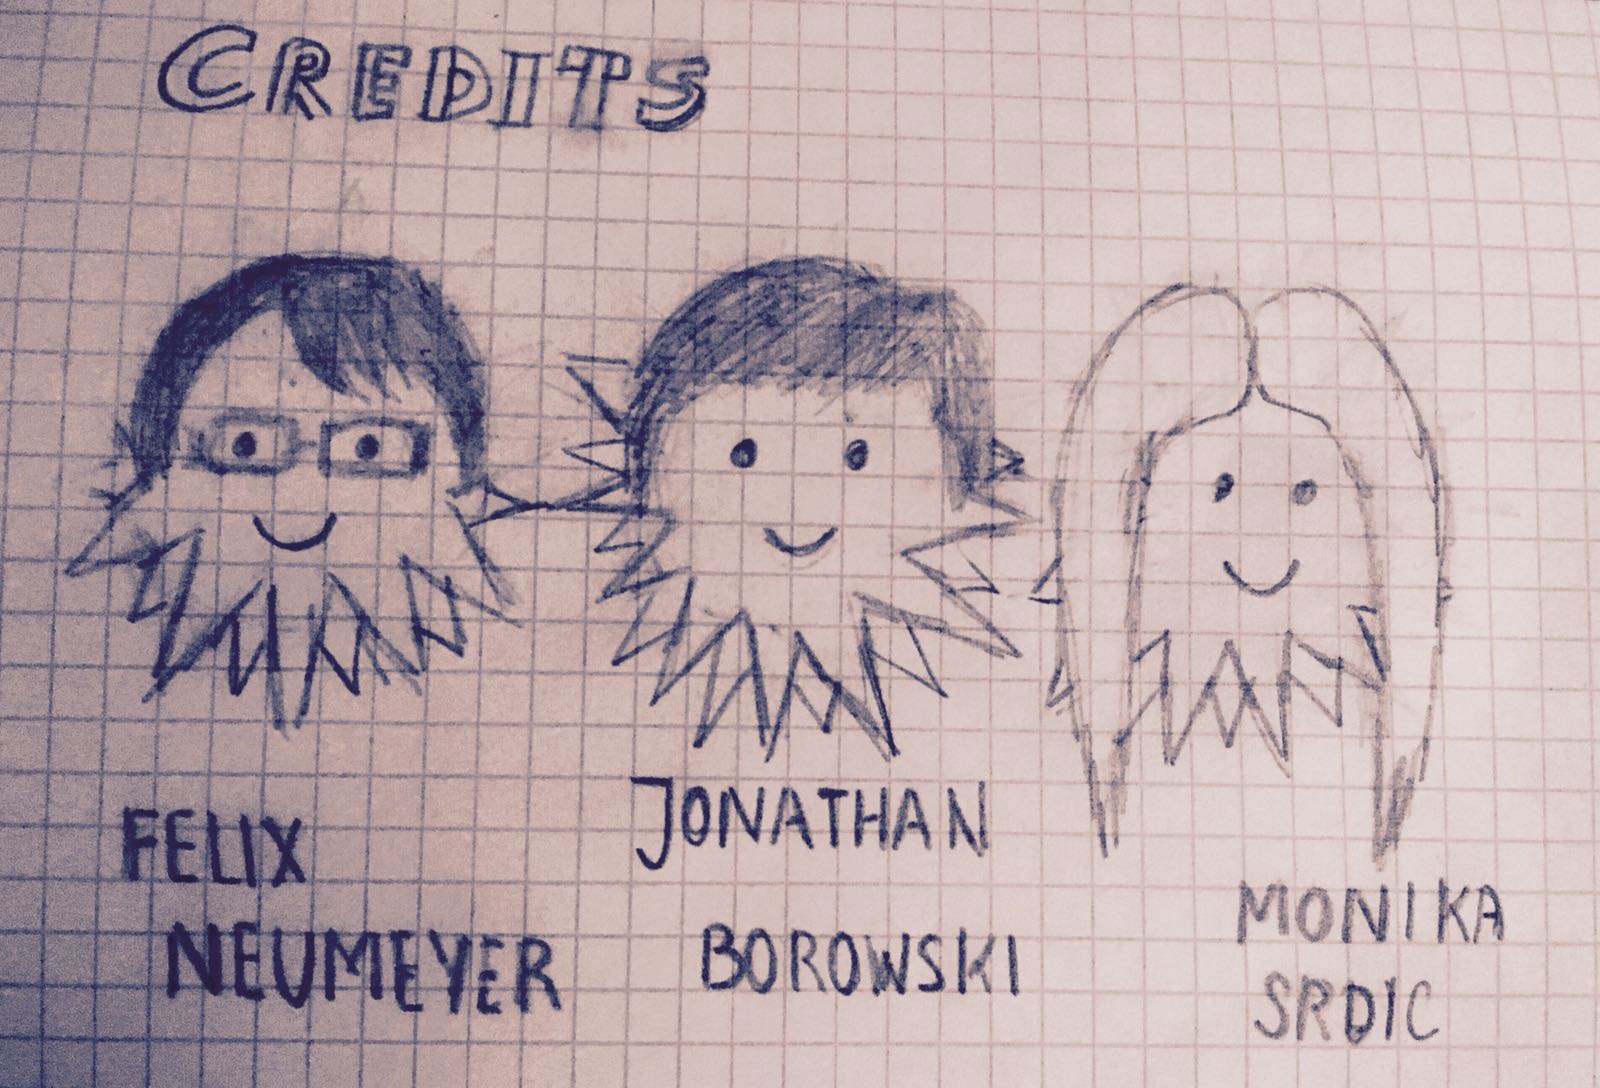 CREDITS
FELIX
NEUMEYER
JONATHAN
BOROWSKI
MONIKA
SRDIC